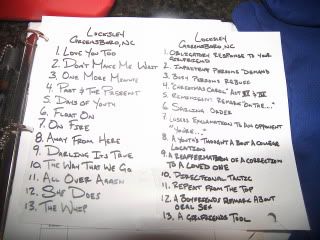 LOCKSLEY
GREENSBORO, NC
1. LOVE YOU TOO
2. DON'T MAKE ME WAIT
3. ONE MORE MINUTE
4. PAST & THE PRESENT
5. DAYS OF YOUTH
6. FLOAT ON
7. ON FIRE
8. AWAY FROM HERE
9. DARLING IT'S TRUE
10. THE WAY THAT WE GO
11. ALL OVER AGAIN
12. SHE DOES
13. THE WHIP
LOCKSLEY
GREENSBORO, NC
1. OBLIGATORY RESPONSE TO YOUR
GIRLFRIEND
2. IMPATIENT PERSONS DEMAND
3. BUSY PERSONS REBUFF
4. "CHRISTMAS CAROL" ACT II & III
5. REMINISCENT REMARK "ON THE..."
6. SIBLING ORDER
7. LOSERS EXCLAMATION TO AN OPPONENT
"YOU'RE..."
8. A YOUTH'S THOUGHT ABOUT A COLLEGE
LOCATION
9. A REAFFIRMATION OF A CORRECTION
TO A LOVED ONE
10. DIRECTIONAL TACTIC
11. REPEAT FROM THE TOP
12. A BOYFRIENDS REMARK ABOUT
ORAL SEX
13. A GIRLFRIENDS TOOL